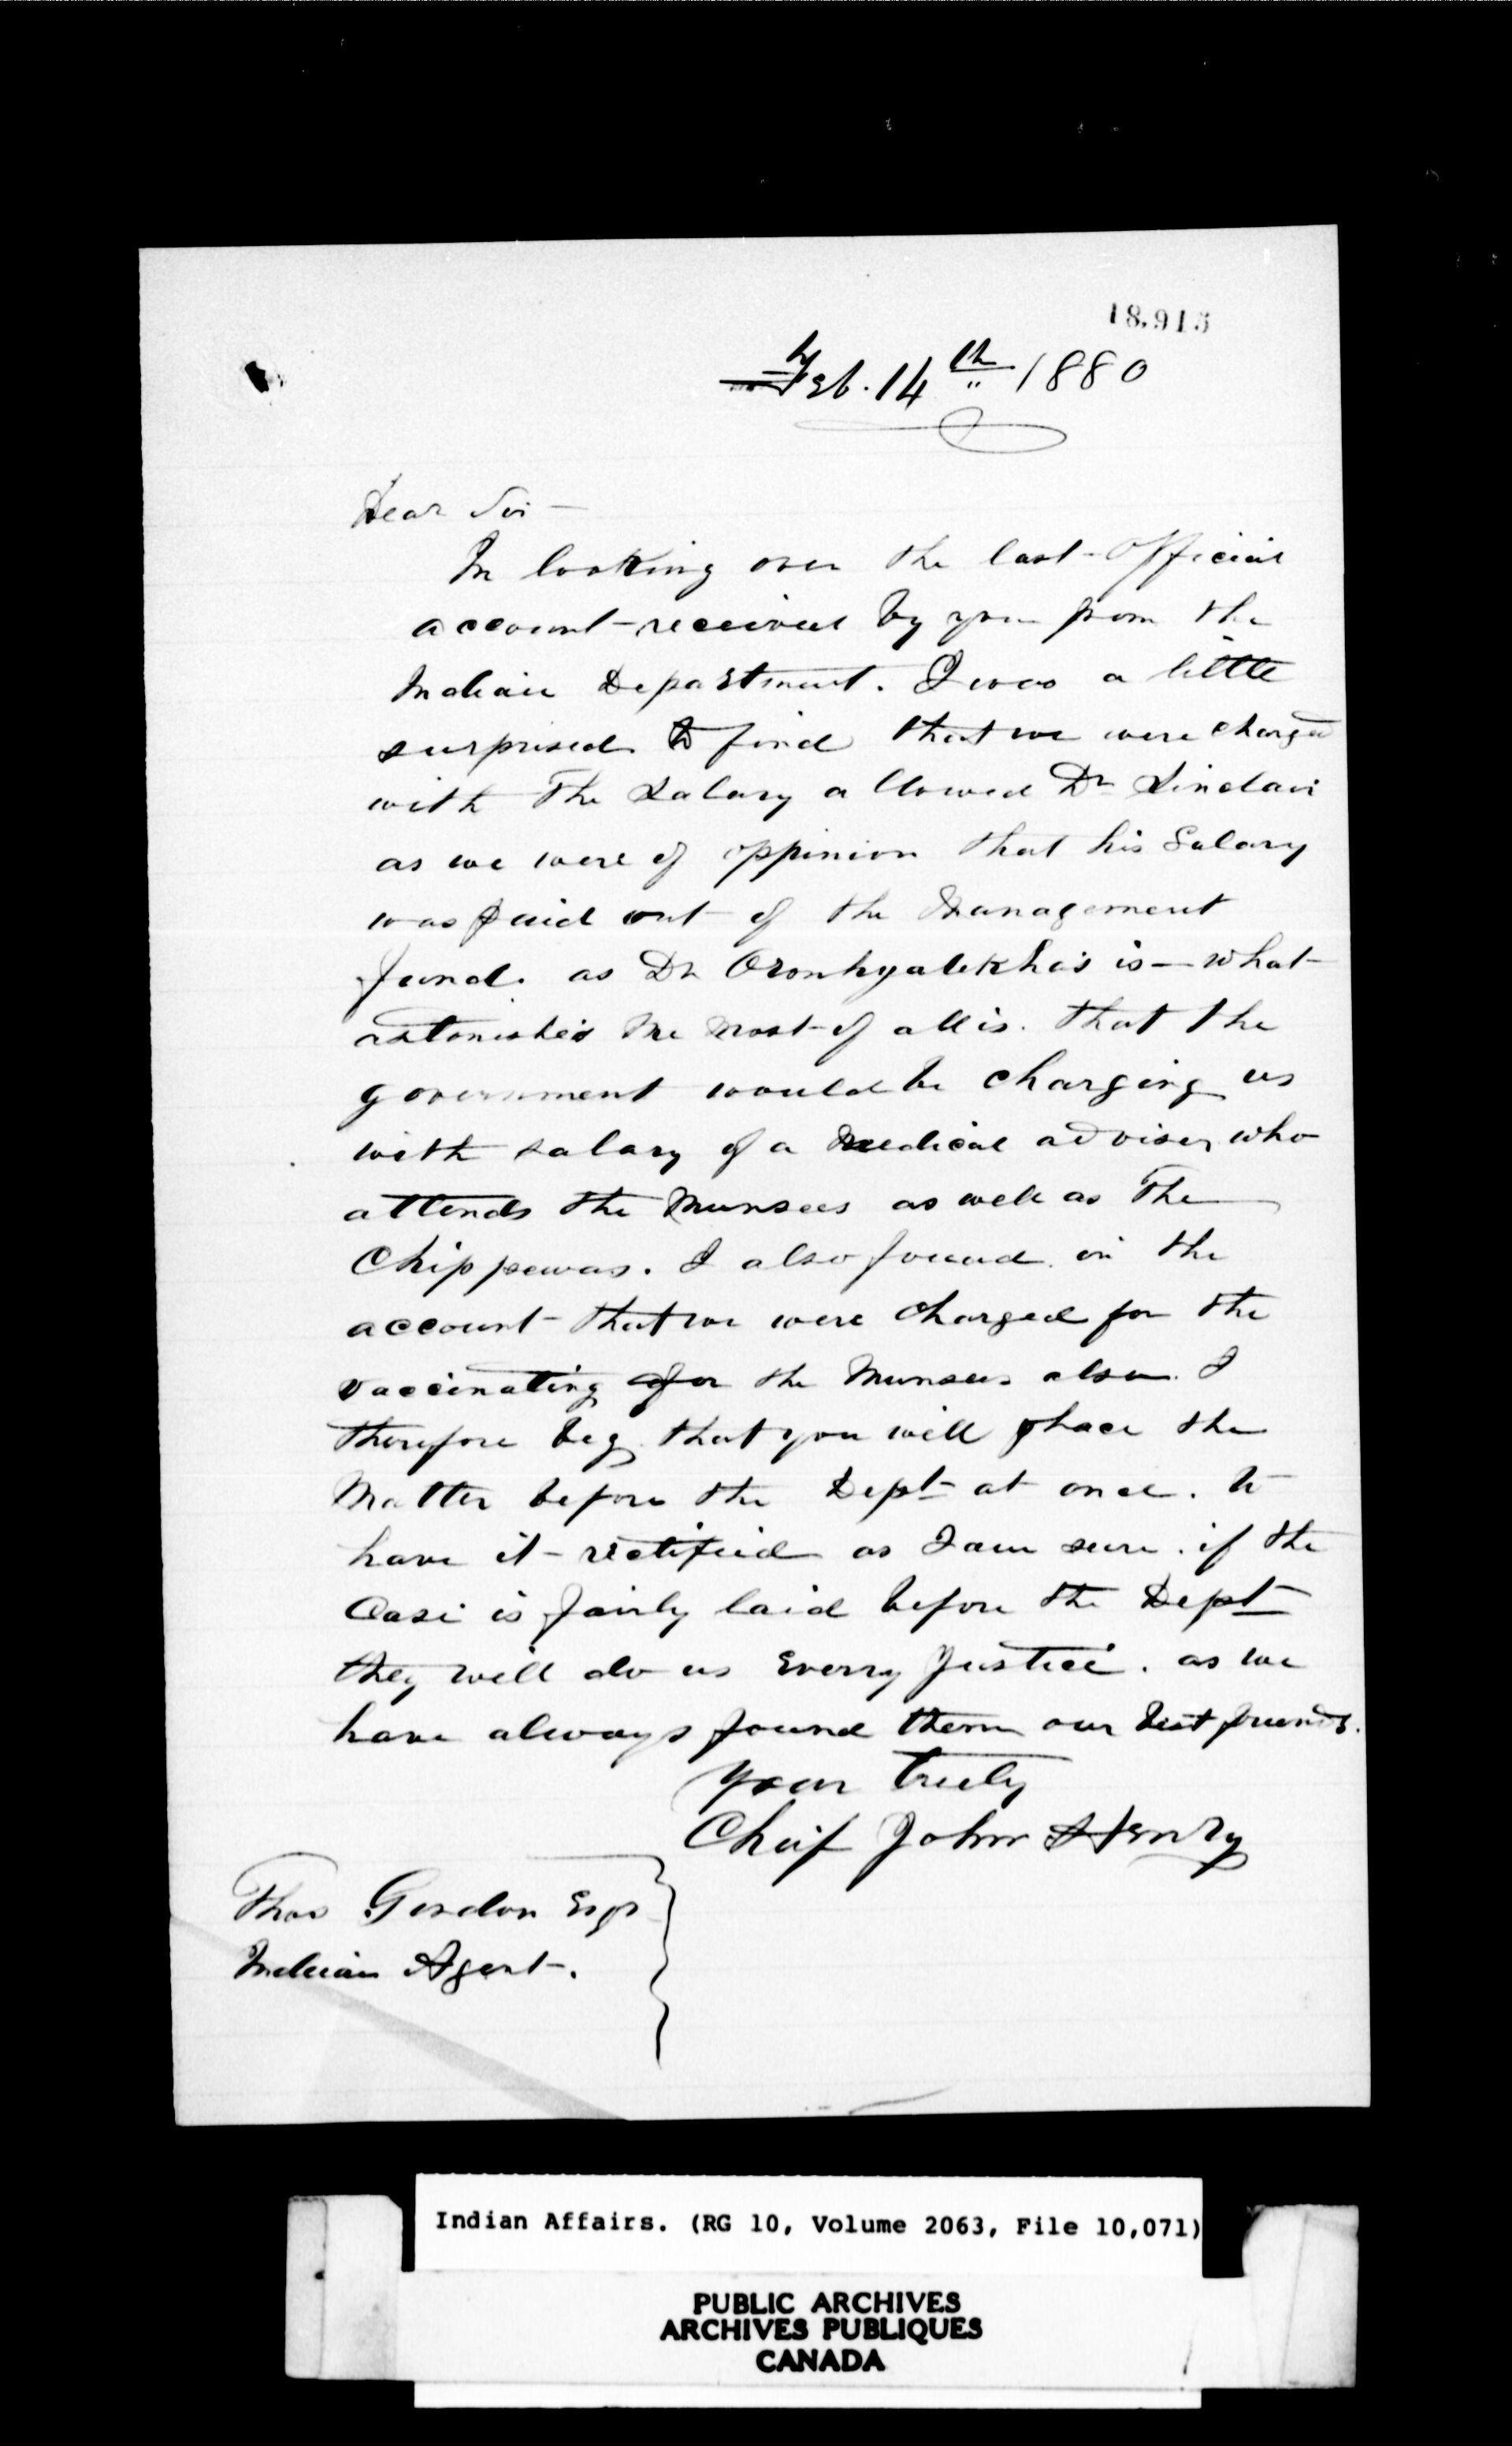 18,915
Feb. 14th 1880
Dear Sir —
In looking over the last official
account received by you from the
Indian Department. I was a little
surprised to find that we were charged
with The Salary allowed Dr Sinclair
as we were of oppinion that his Salary
was paid out of the Management
fund. as Dr Oronhyatekha's is — what
astonishes me most of all is. that the
government would be charging us
with salary of a Medical adviser who
attends the Munsees as well as The
Chippewas. I also found in the
account that we were charged for the
vaccinating for the Munsees also. I
therefore beg that you will place the
Matter before the Dept at once. to
have it rectified as I am sure. if the
Case is fairly laid before the Dept
they will do us Everry Justice. as we
have always found them our best friends.
Your truly
Chief John Henry
Thos Gordon Esqr
Indian Agent.
Indian Affairs. (RG 10, Volume 2063, File 10,071)
PUBLIC ARCHIVES
ARCHIVES PUBLIQUES
CANADA